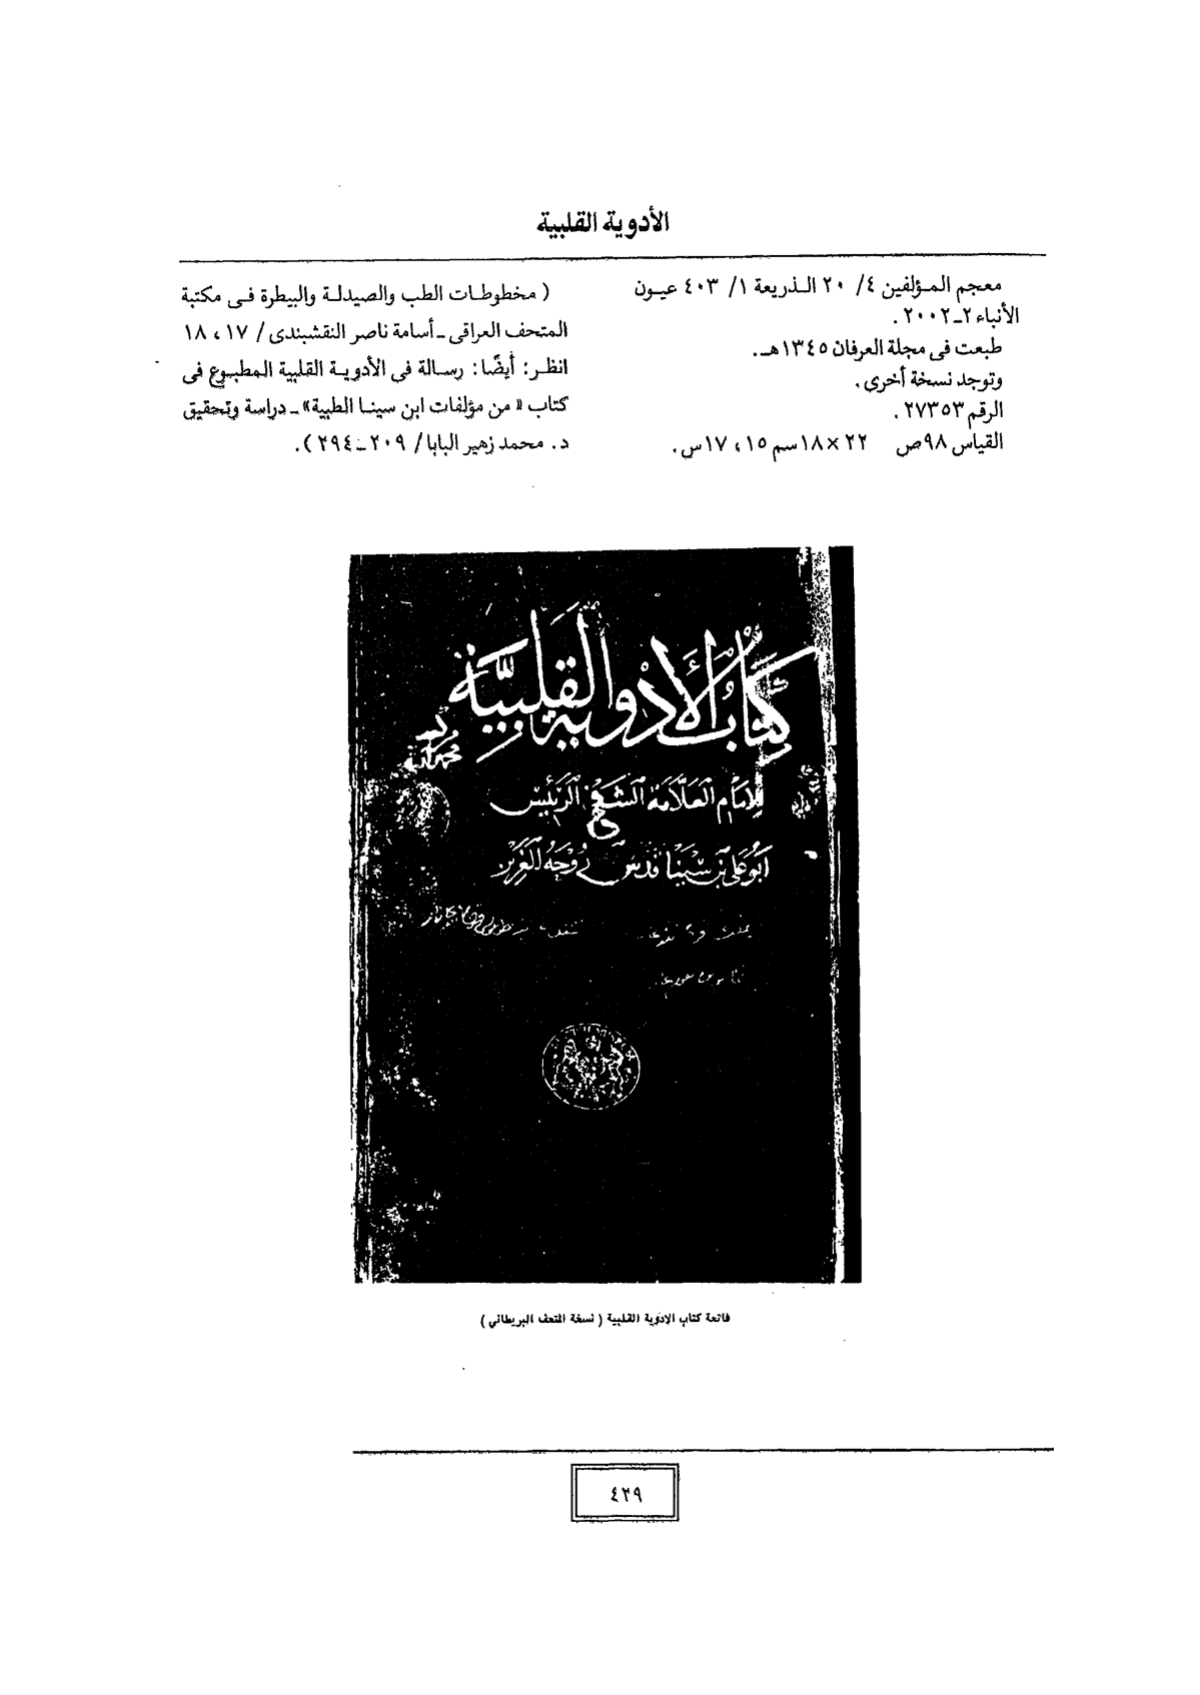 الأدوية القلبية
معجم المؤلفين ٤/ ٢٠ الذريعة ١/ ٤٠٣ عيون
الأنباء ٢ـ٢٠٠٢ .
طبعت فى مجلة العرفان ١٣٤٥هـ.
وتوجد نسخة أخرى .
الرقم ٢٧٣٥٣ .
القياس ٩٨ص ٢٢ × ١٨سم ١٥، ١٧س .
( مخطوطات الطب والصيدلة والبيطرة فى مكتبة
المتحف العراقى ـ أسامة ناصر النقشبندى / ١٧ ، ١٨
انظر: أيضًا: رسالة فى الأدوية القلبية المطبوع فى
كتاب « من مؤلفات ابن سينا الطبية» ـ دراسة وتحقيق
د. محمد زهير البابا / ٢٠٩ ـ ٢٩٤ ).
كتاب الأدوية القلبية
للإمام العلامة الشيخ الرئيس
أبو على بن سينا قدس روحه العزيز
فاتحة كتاب الادوية القلبية ( نسخة المتحف البريطاني )
٤٢٩